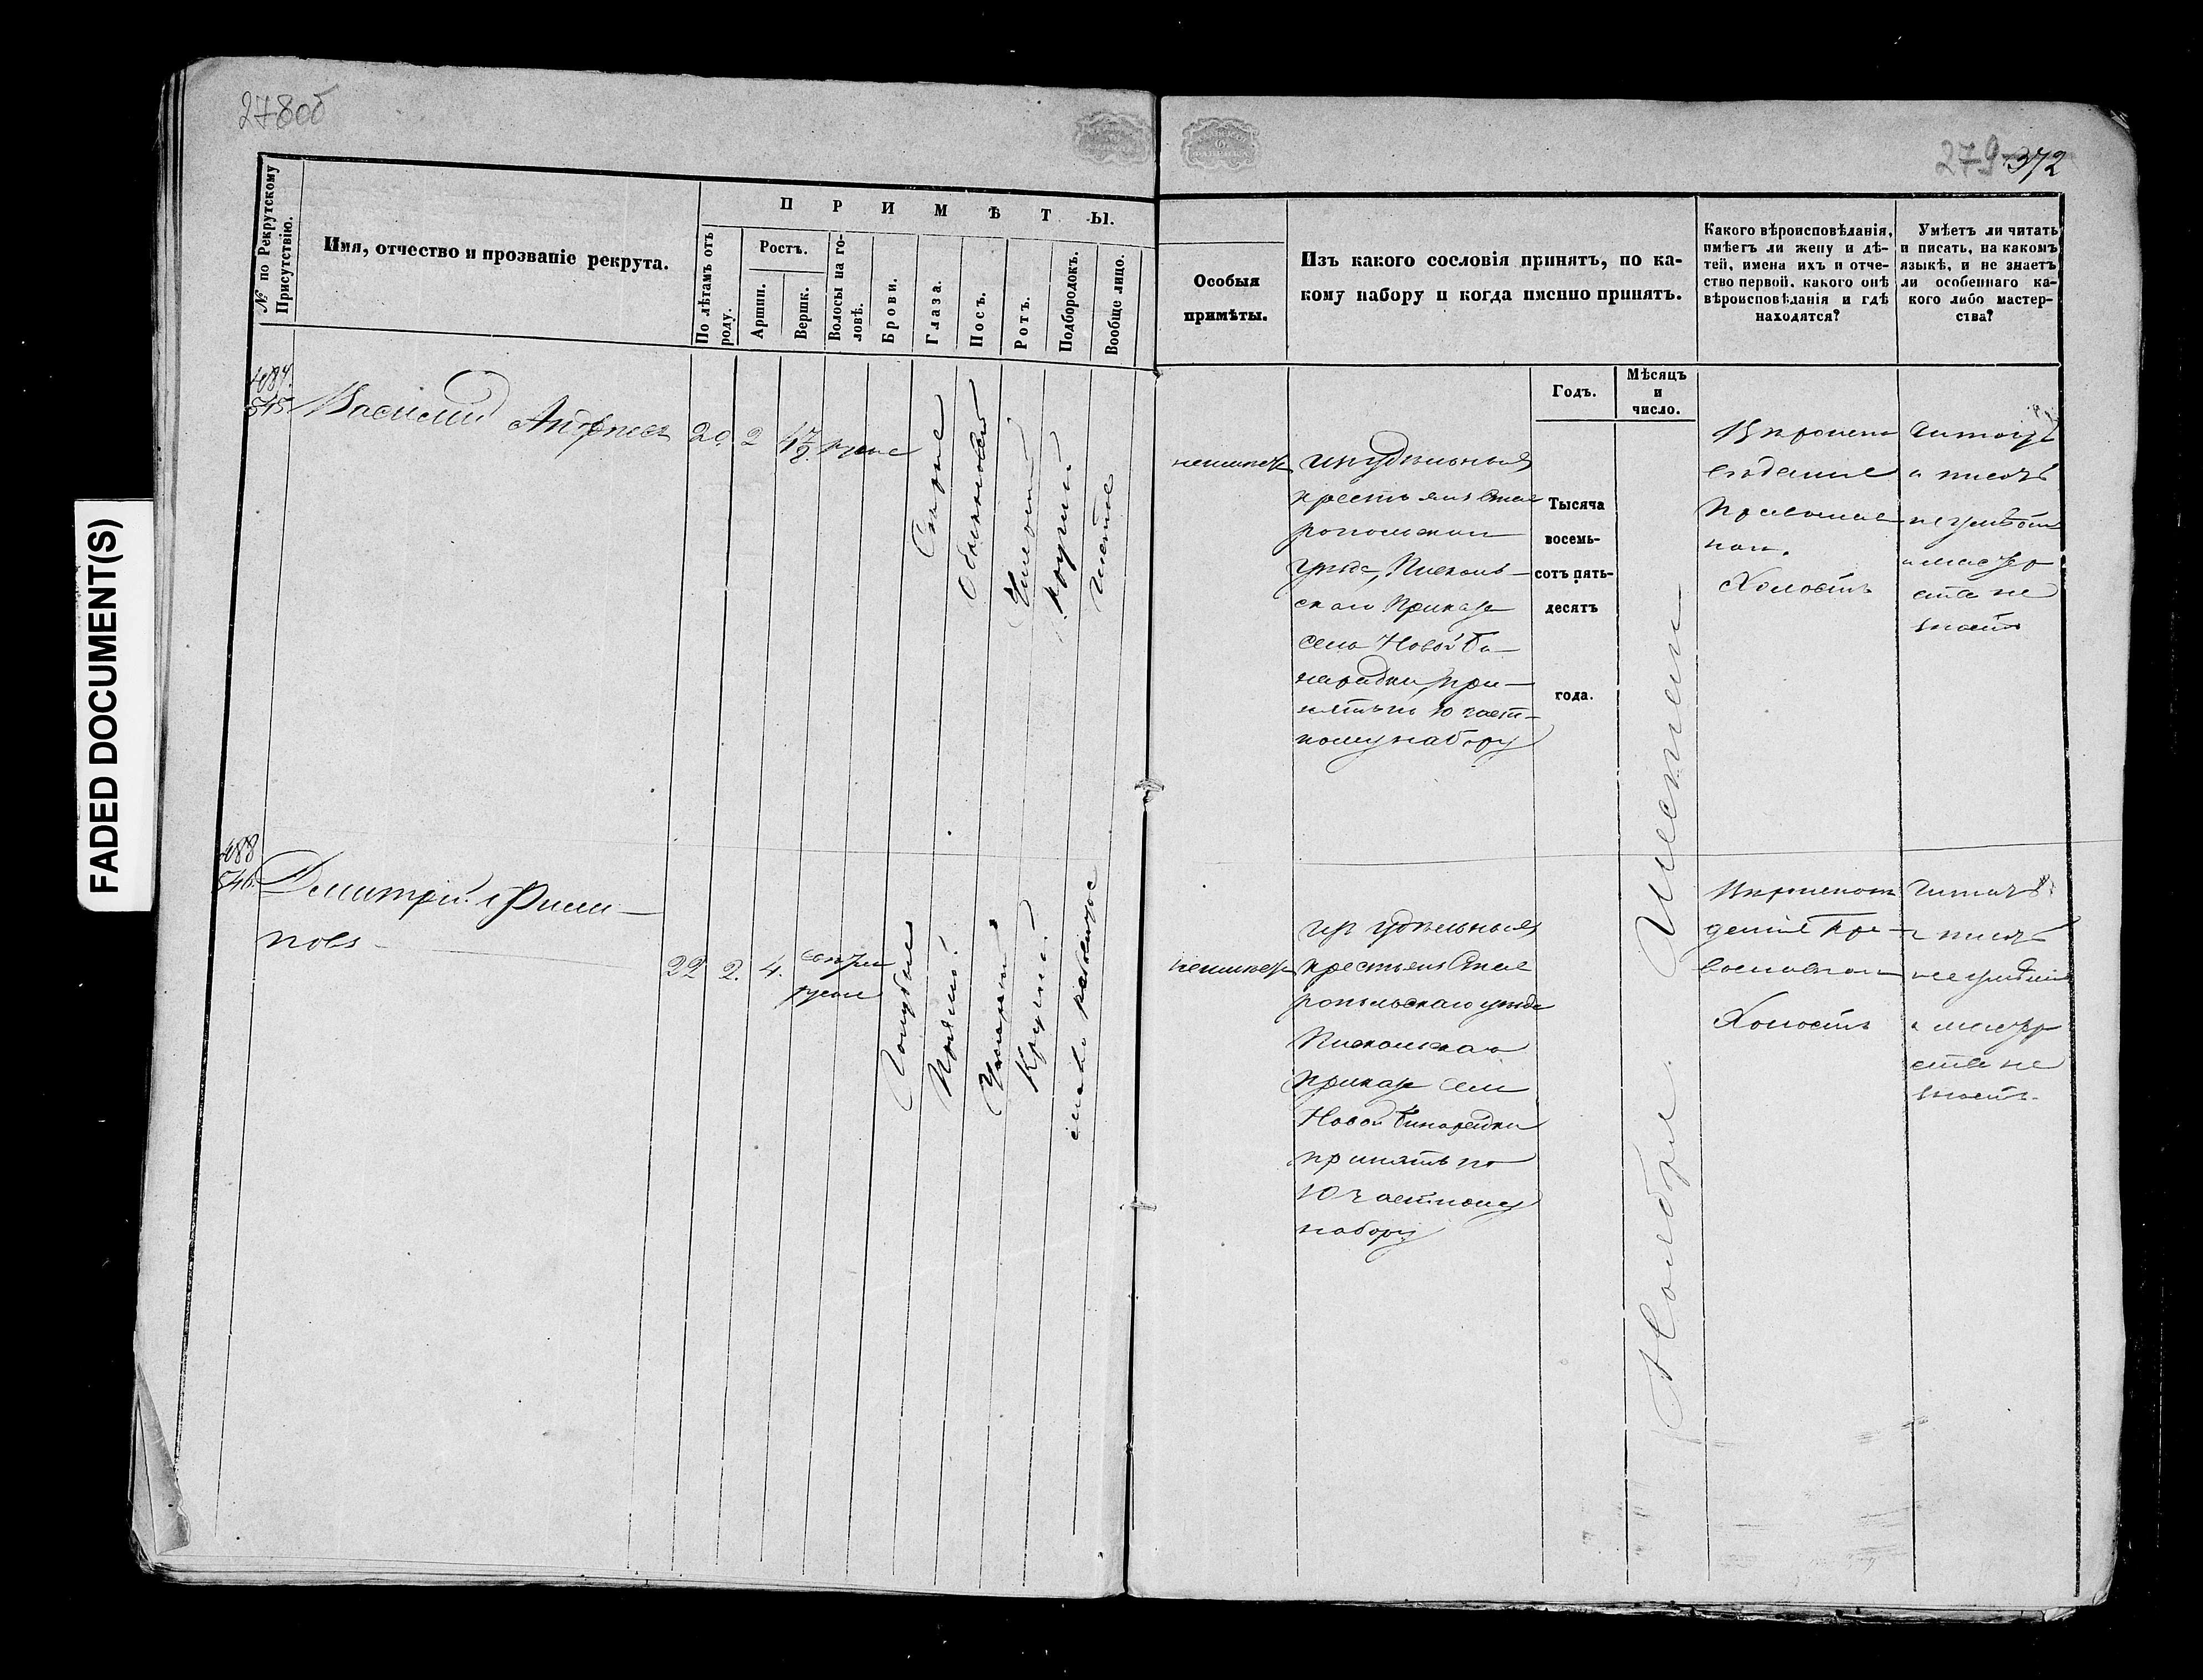 278об
279 372
FADED DOCUMENT(S)
№ по Рекрутскому
Присутствію.
Имя, отчество и прозваніе рекрута.
ПРИМѢТЫ.
По лѣтамъ отъ
роду.
Ростъ.
Аршин.
Вершк.
Волосы на го-
ловѣ.
Брови.
Глаза.
Носъ.
Ротъ.
Подбородокъ.
Вообще лицо.
Особыя
примѣты.
Изъ какого сословія принятъ, по ка-
кому набору и когда именно принятъ.
Годъ.
Мѣсяцъ
и
число.
Какого вѣроисповѣданія,
имѣетъ ли жену и дѣ-
тей, имена ихъ и отче-
ство первой, какого онѣ
вѣроисповѣданія и гдѣ
находятся?
Умѣетъ ли читать
и писать, на какомъ
языкѣ, и не знаетъ
ли особеннаго ка-
кого либо мастер-
ства?
545
Василий Андреевъ
20 2 русые
Обыкновен
Чистое
неимѣетъ
изъ удѣльныхъ
крестьянъ Став
ропольскаго
уѣзда,
скаго Приказа
села Новой Би
нарадки, при-
нятъ по 10 част-
ному набору
Тысяча
восемь-
сотъ пять-
десятъ
года.
Ноября
Вѣроиспо
вѣданія
Православ
наго.
Холостъ
Читать
и писать
неумѣетъ
и мастер
ства не
знаетъ
488
546
Дмитрий Филип-
повъ
22 2. 4. свѣтло
русые
Голубые
Прямой
Умѣрен
Круглый
неимѣетъ
изъ удѣльныхъ
крестьянъ Став
ропольскаго уѣзда
приказа села
Новой Бинарадки
принятъ по
10 частному
набору
Вѣроисповѣ
данія Пра-
вославнаго
Холостъ
Читать
и писать
неумѣетъ
и мастер
ства не
знаетъ